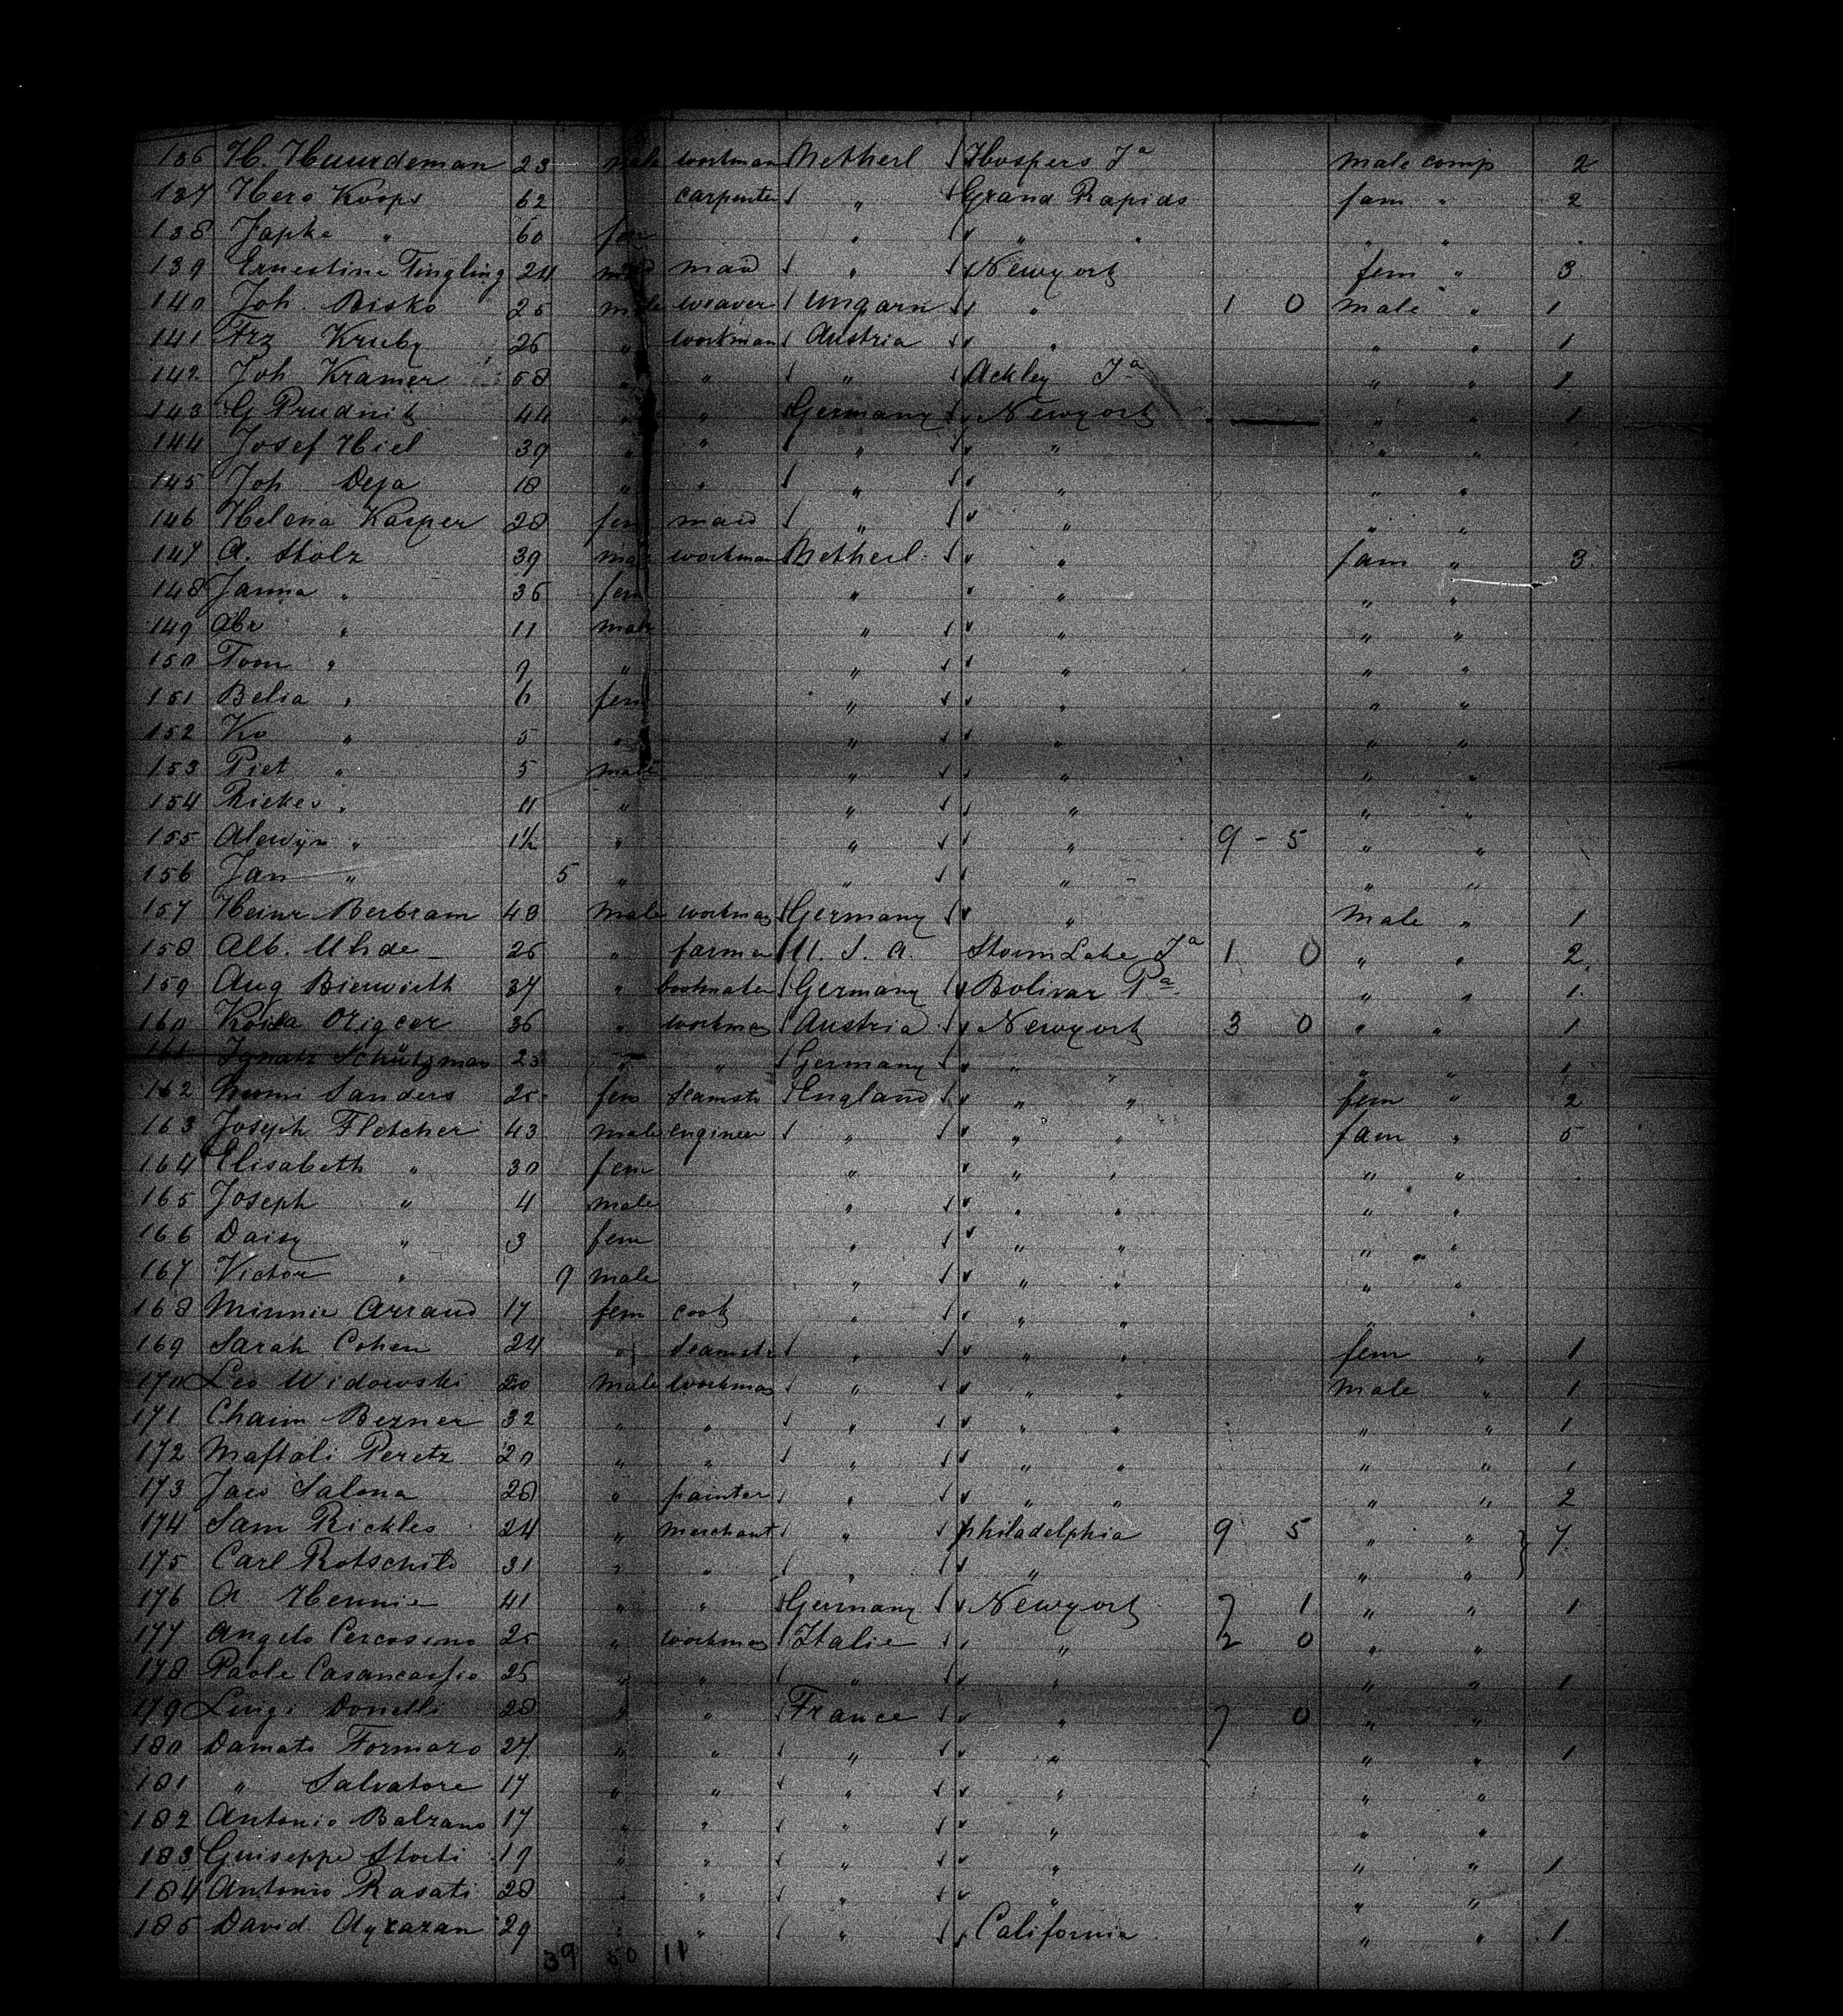 136 H. Huurdeman 23 male workman Netherl Hospers Ja male comp 2
137 Hero Koops 62 carpenter " Grand Rapids fam " 2
138 Japke " 60 fem " " " " "
139 Ernestine Tingling 24 maid " Newyork fem " 3
140 Joh. Bisko 25 male weaver Ungarn " 1 0 male " 1
141 Frz Kruby 26 " workman Austria " " " 1
142 Joh Kramer 58 " " " Ackley Ja " " 1
143 G Prudnik 44 " " Germany Newyork " " 1
144 Josef Hiel 39 " " " " " "
145 Joh Deja 18 " " " " " "
146 Helena Kasper 28 fem maid " " " "
147 A. Stolz 39 male workman Netherl. " fam " 3
148 Janna " 36 fem " " " "
149 Abr " 11 male " " " "
150 Tom " 9 " " " " "
151 Belia " 6 fem " " " "
152 Ko " 5 " " " " "
153 Piet " 5 male " " " "
154 " " " " " "
155 Alewijn " 1½ " " " 9 - 5 " "
156 Jan " 5 " " " " "
157 Heinr Bertram 48 male workman Germany " male " 1
158 Alb. Uhde 26 " farmer U. S. A. Storm Lake Ja 1 0 " " 2
159 Aug Bierwirth 37 " Germany Bolivar Pa " " 1
160 36 " workman Austria Newyork 3 0 " " 1
161 Ignatz Schützman 23 " " Germany " " " " 1
162 Sanders 25 fem seamstr England " " fem " 2
163 Joseph Fletcher 43 male engineer " " " fam " 5
164 Elisabeth " 30 fem " " " " "
165 Joseph " 4 male " " " " "
166 Daisy " 3 fem " " " " "
167 Victor " 9 male " " " " "
168 Minnie 17 fem cook " " " " "
169 Sarah Cohen 24 " seamstr " " " fem " 1
170 Leo Widowski 20 male workman " " " male " 1
171 Chaim Bezner 32 " " " " " " " 1
172 Naftali Peretz 20 " " " " " " " 1
173 Salona 28 " painter " " " " " 2
174 Sam Rickles 24 " merchant " Philadelphia 9 5 " " 7
175 Carl Rotschild 31 " " " " " "
176 A. Hennie 41 " " Germany Newyork 7 1 " " 1
177 Angelo 25 " workman Italie " 2 0 " "
178 Paole 25 " " " " " " 1
179 Luigi Donelli 28 " " France " 7 0 " "
180 Damato Formaro 27 " " " " " " 1
181 " Salvatore 17 " " " " " "
182 Antonio Balzano 17 " " " " " "
183 Guiseppe Storti 19 " " " " " " 1
184 Antonio Rasati 28 " " " " " "
185 David 29 " " " California " " 1
39 50 11